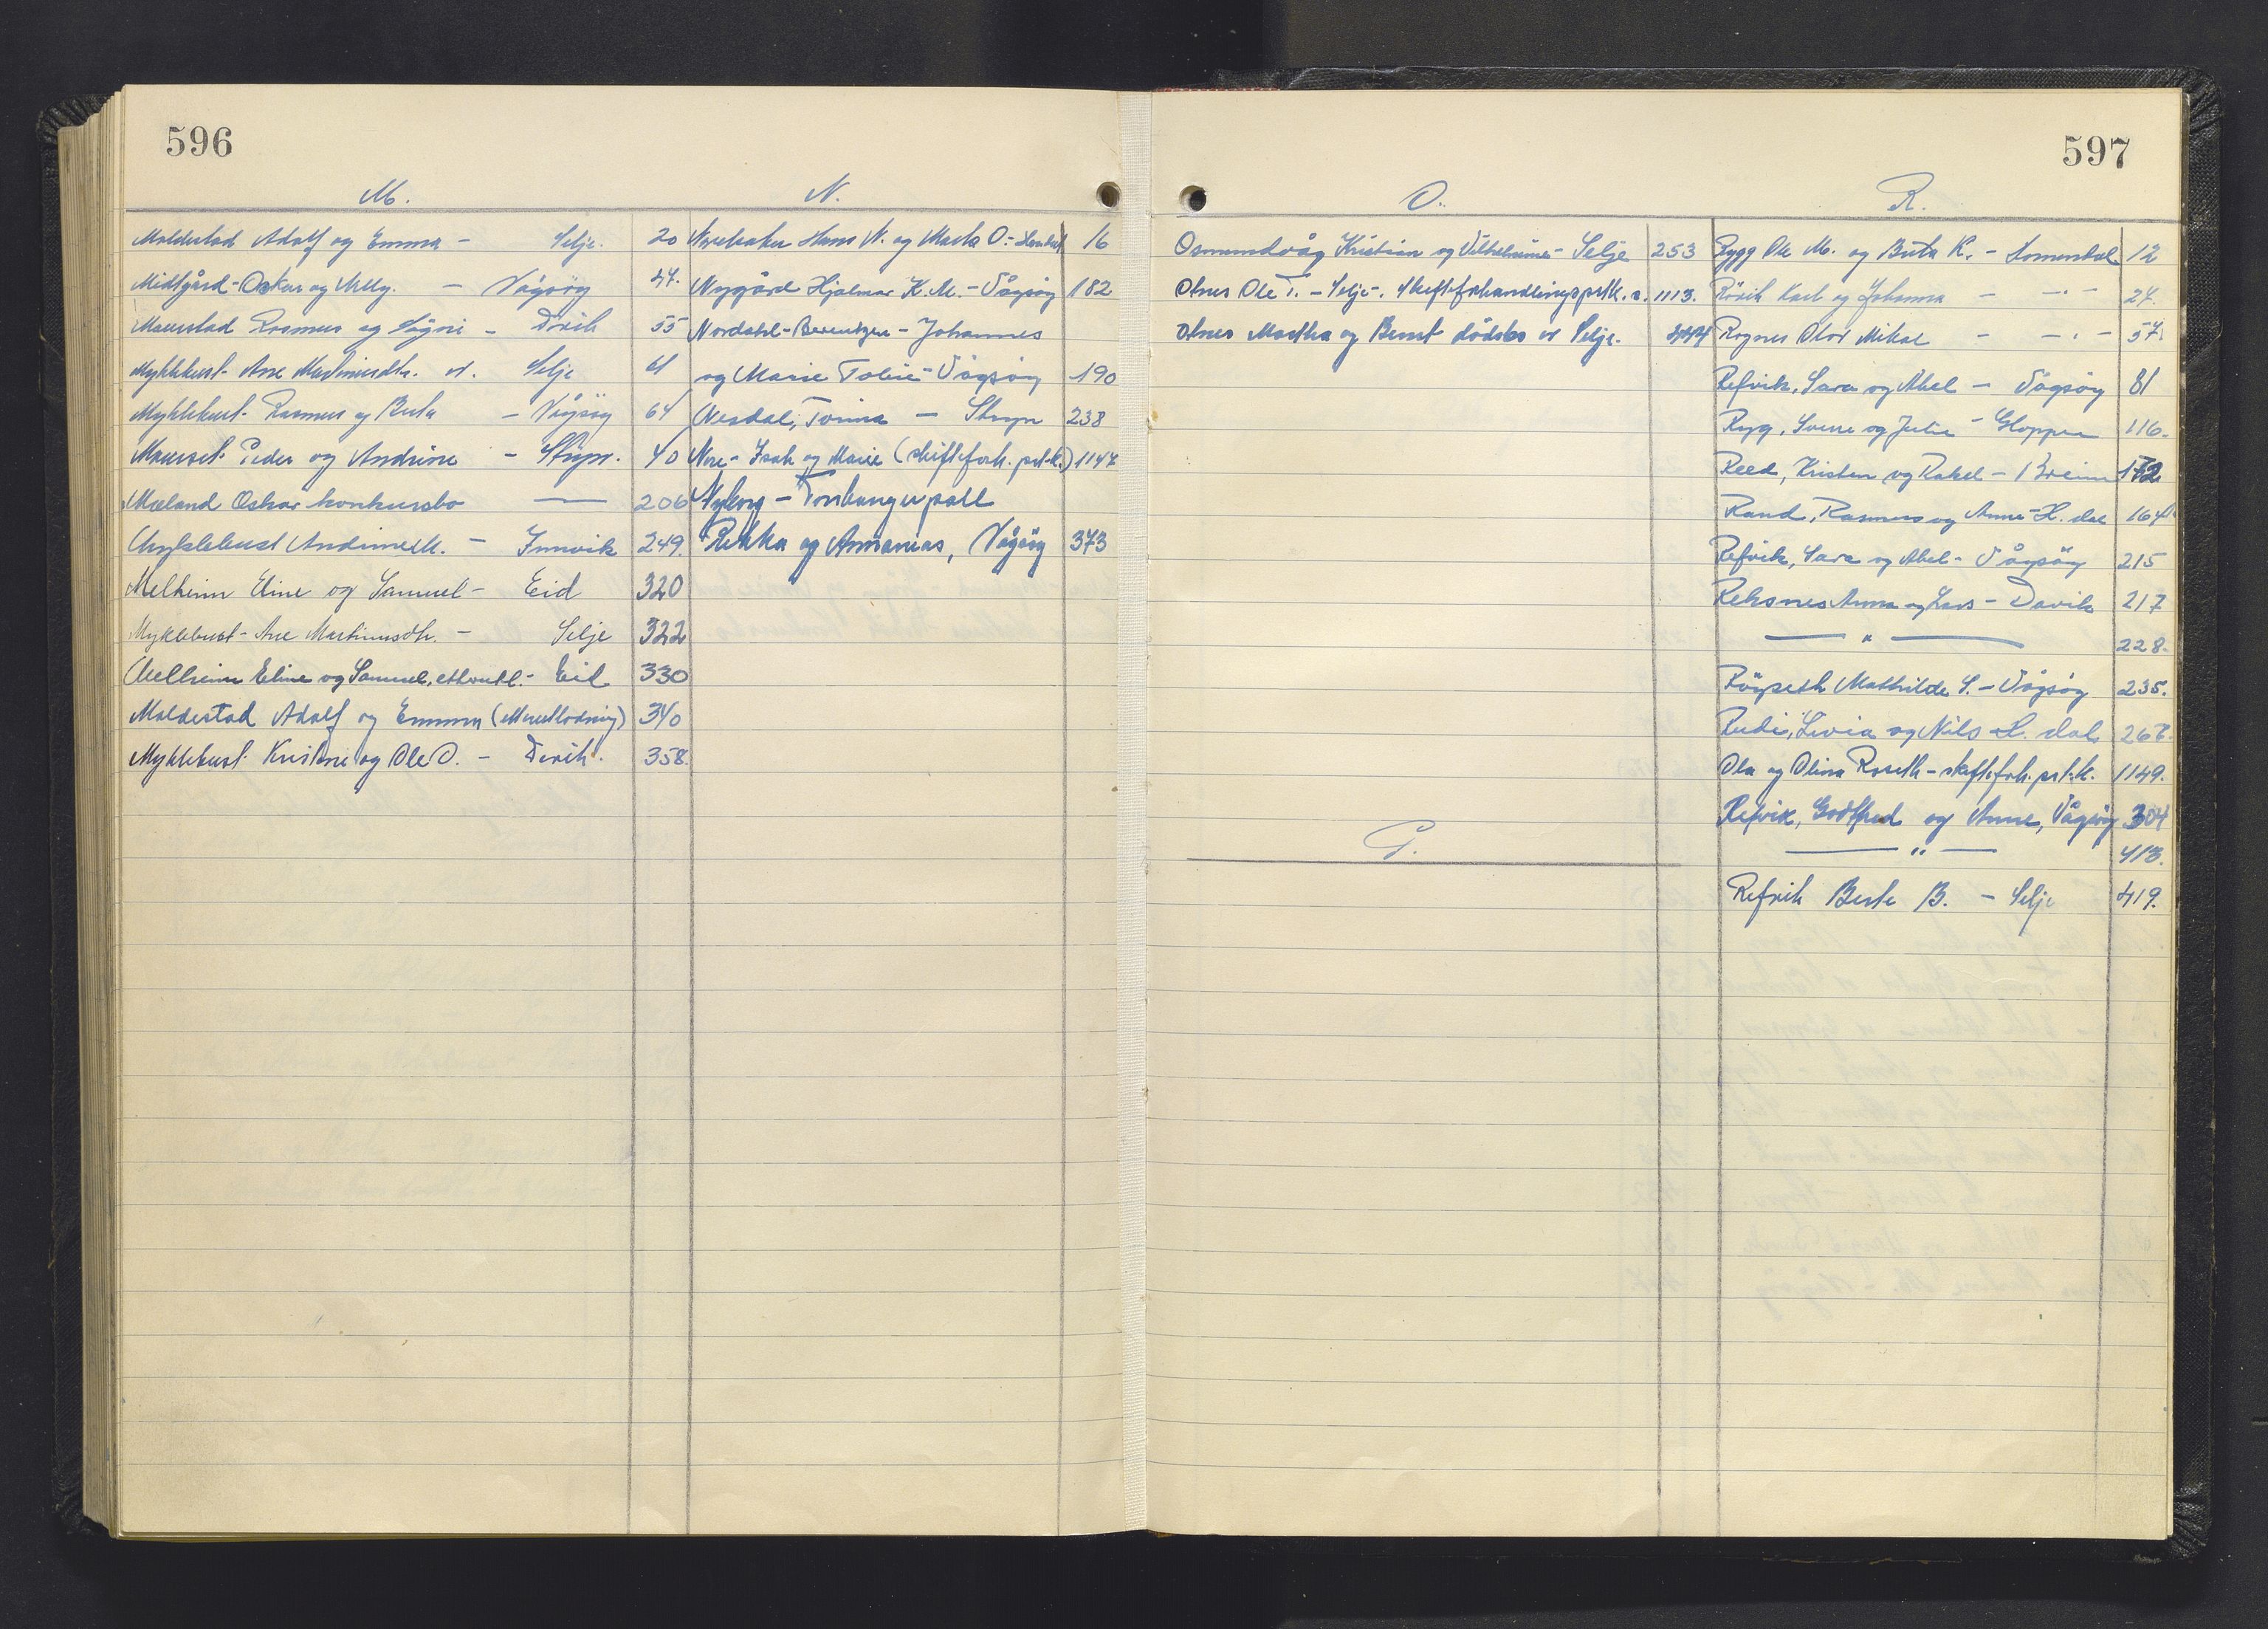 596
M.
Maldestad Adolf og Emma - Selje. 20
Midtgård - Oskar og Milly. - Vågsöy 47.
Maurstad Rasmus og Signi - Davik 55
Myklebust Ane Martinusdtr. Selje 61
Myklebust Rasmus og Berta - Vågsöy 64
Maurset Peder og Andrine - Stryn. 40
Mæland Oskar konkursbo — 206
Myklebust Andine M. - Innvik 249.
Melheim Eline og Samuel - Eid 320
Myklebust - Ane Martinusdtr. - Selje 322
Melheim Eline og Samuel, - Eid 330
Maldestad Adolf og Emma 340
Myklebust Kristine og Ole O. - Davik. 358.
N.
Hans N. og Marta O. - 16
Nygård Hjalmar K. M. - Vågsöy 182
Nordahl - Berentzen - Johannes
og Marie Tobie - Vågsöy 190
Nesdal, Tomina - Stryn 238
Nere - Isak og Marie (skifteforh. prt.k.) 1147
Nyborg -
Rikka og Annanias, Vågsöy 373
597
O.
Osmundvåg Kristian og Vilhelmine - Selje 253
Otnes Ole T. - Selje -. Skifteforhandlingsprtk. 1113.
Otnes Martha og Bernt dödsbo Selje. 444
P.
R.
Rygg Ole M. og Berta K. - Hornindal 12
Rövik Karl og Johanna - - " - 27.
Rognes Olav Mikal - - " - 57.
Refvik, Sara og Abel - Vågsöy 81
Ryg, Sverre og Julie - Gloppen 116.
Reed, Kristen og Rakel - Breim 172
Rand, Rasmus og Anne - H. dal 164
Refvik, Sara og Abel - Vågsöy 215
Reksnes Anna og Lars - Davik 217
— " — 228.
Röyseth Mathilde S. - Vågsöy 235.
Livia og Nils - H. dal 267.
Ola og Olina Roseth - skifteforh. prt.k. 1149.
Refvik, Godtfred og Anne, Vågsöy 304
— " — 413.
Refvik Berte B. - Selje 419.